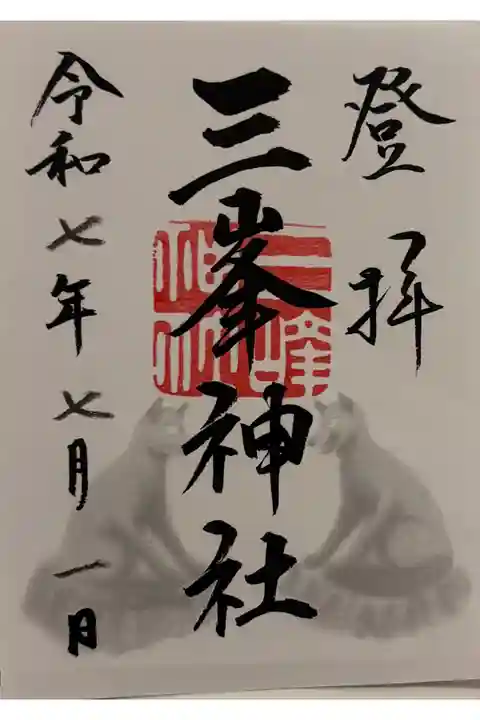 登拝
三峯神社
三峰神社
令和七年七月一日